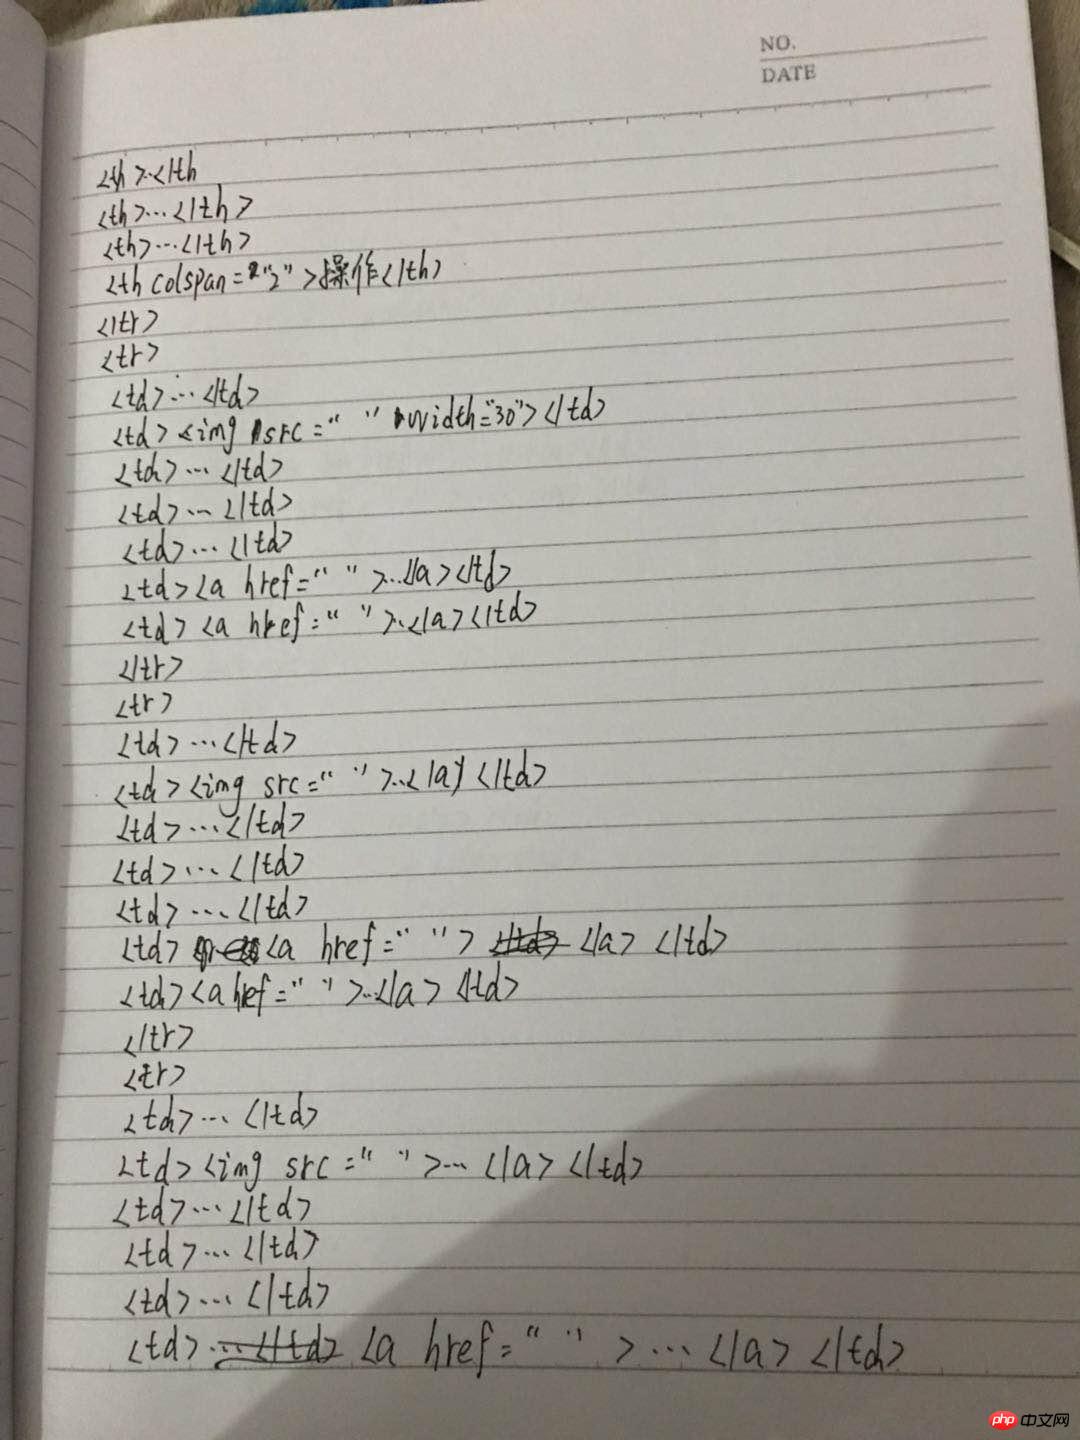 NO.
DATE
<th>..</th
<th>...</th>
<th>...</th>
<th colspan="2">操作</th>
</tr>
<tr>
<td>...</td>
<td><img src=" " width="30"></td>
<td>...</td>
<td>...</td>
<td>...</td>
<td><a href=" ">...</a></td>
<td><a href=" ">..</a></td>
</tr>
<tr>
<td>...</td>
<td><img src=" ">...</a></td>
<td>...</td>
<td>...</td>
<td>...</td>
<td><a href=" "></a></td>
<td><a href=" ">..</a></td>
</tr>
<tr>
<td>...</td>
<td><img src=" ">...</a></td>
<td>...</td>
<td>...</td>
<td>...</td>
<td><a href=" ">...</a></td>
php 中文网